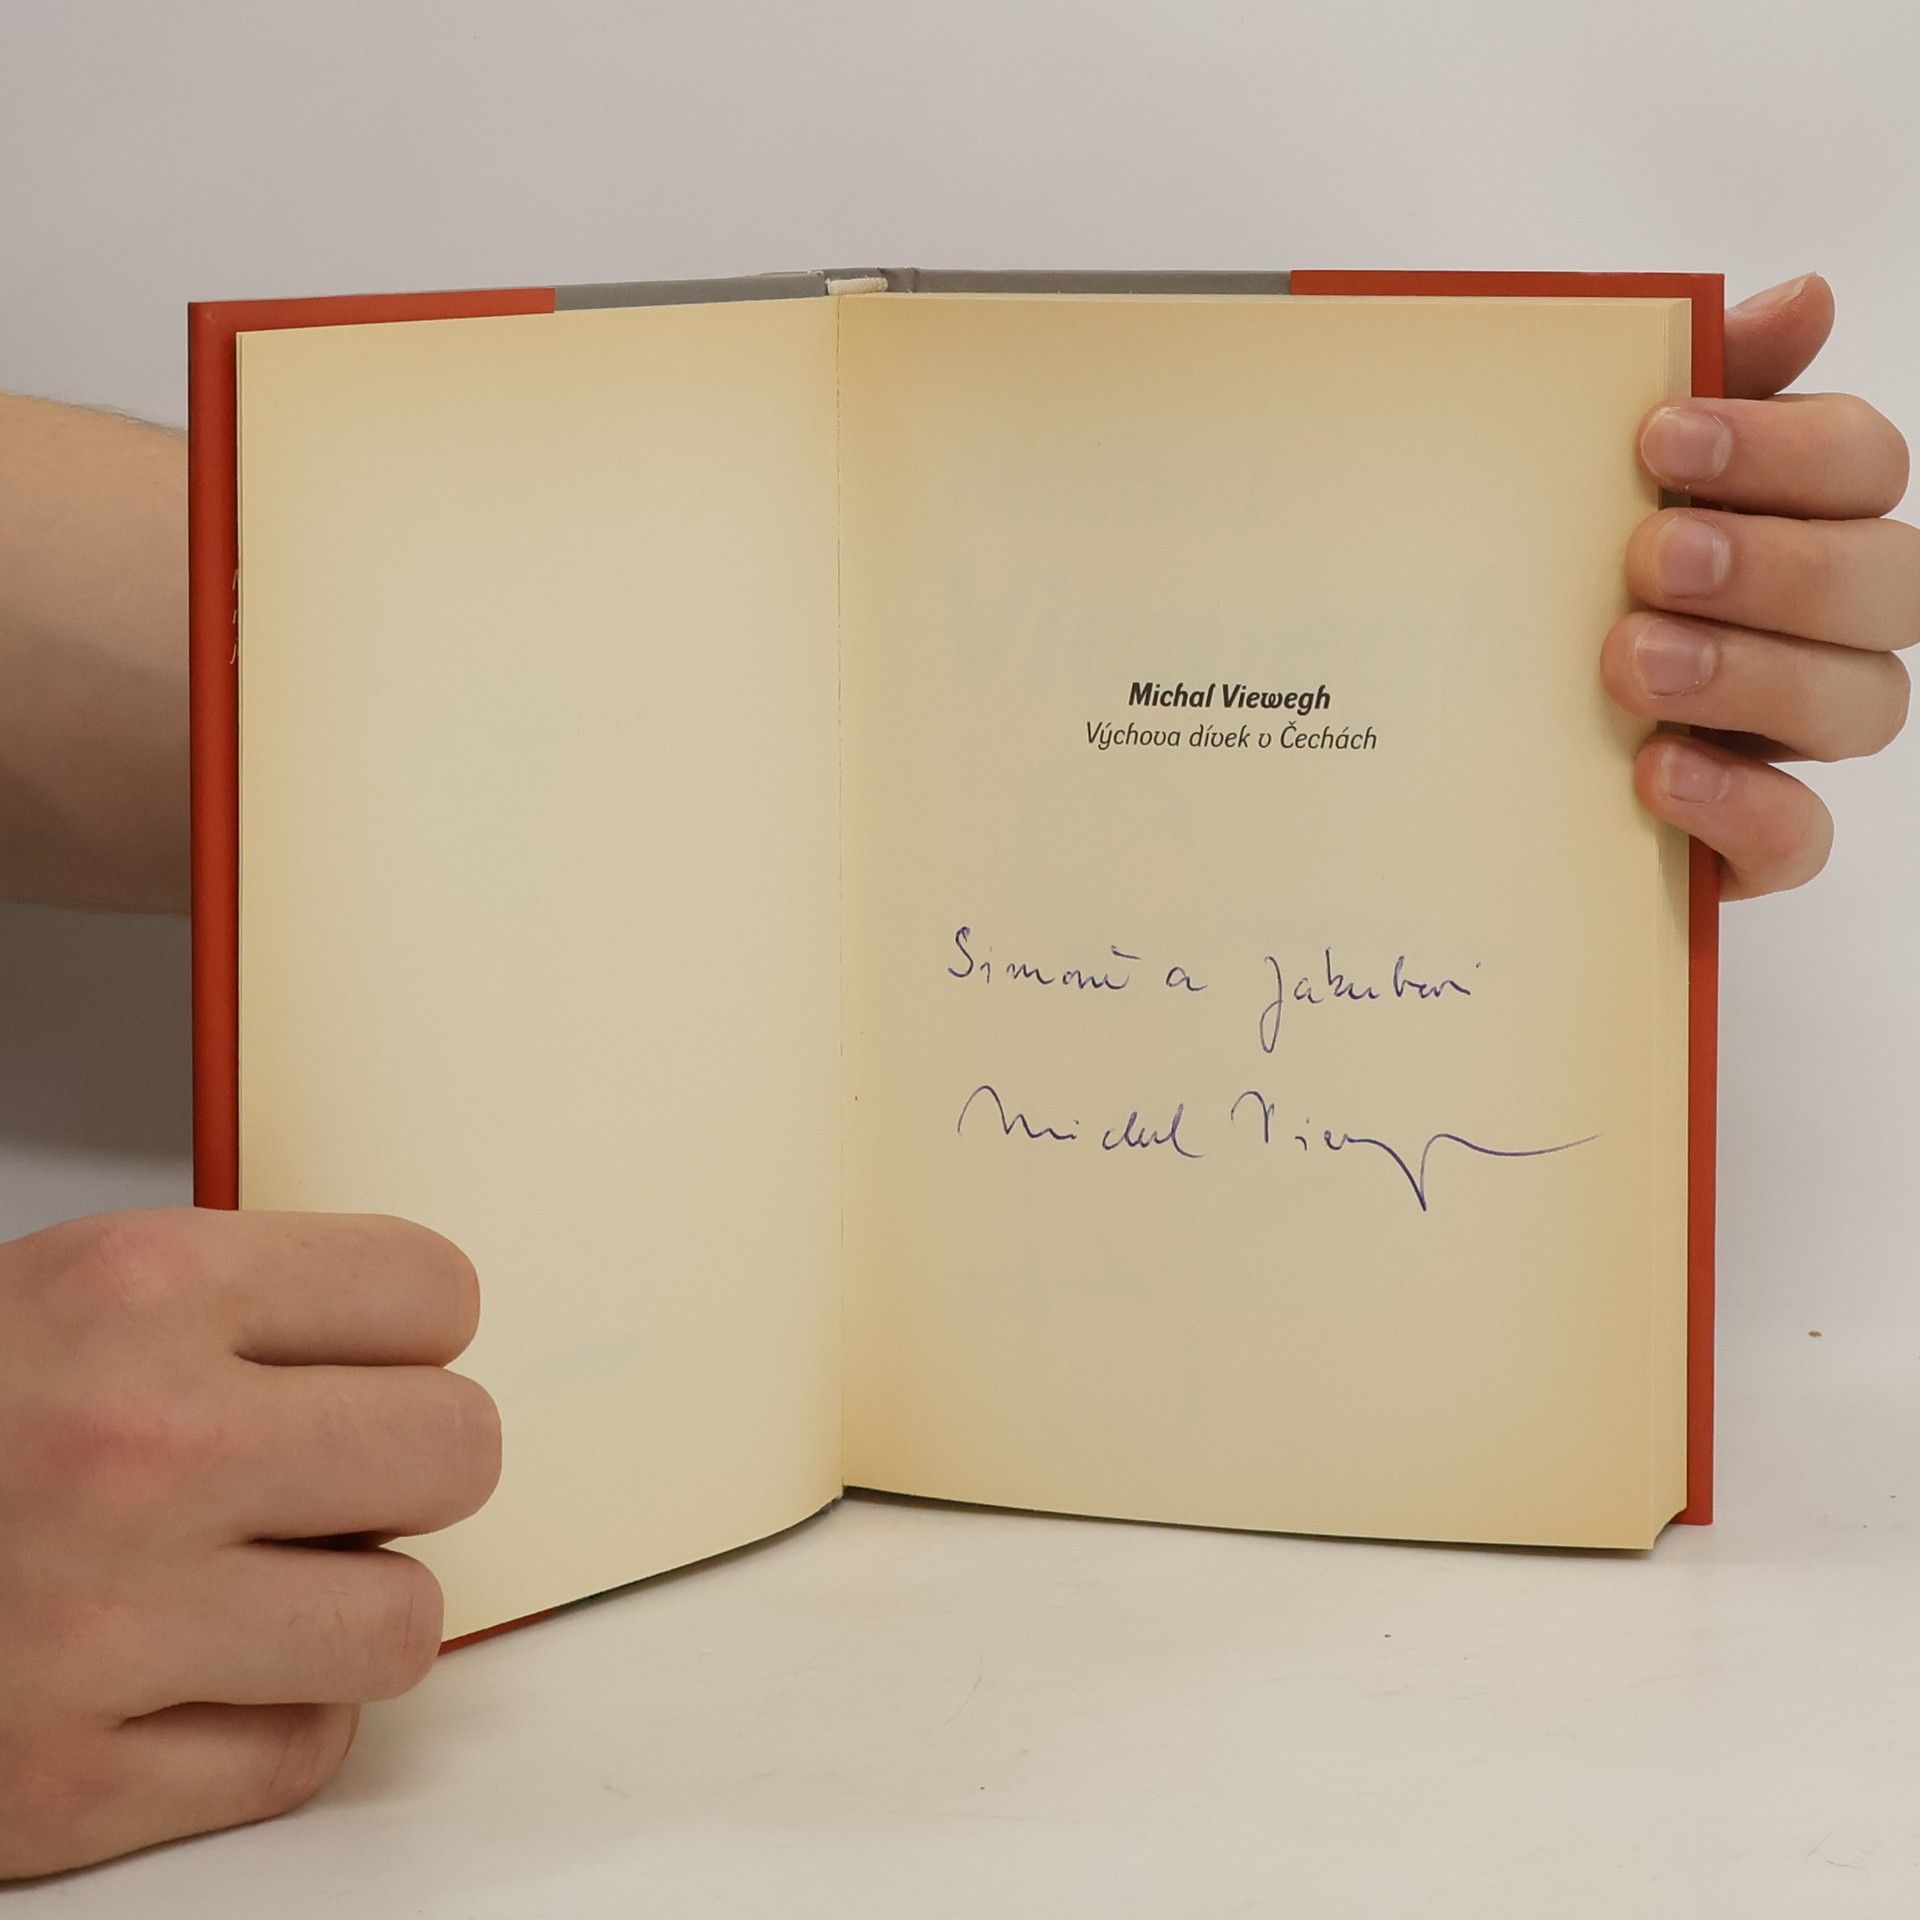 Michal Viewegh
Výchova dívek v Čechách
Simoně a Jakubovi
Michal Viewegh